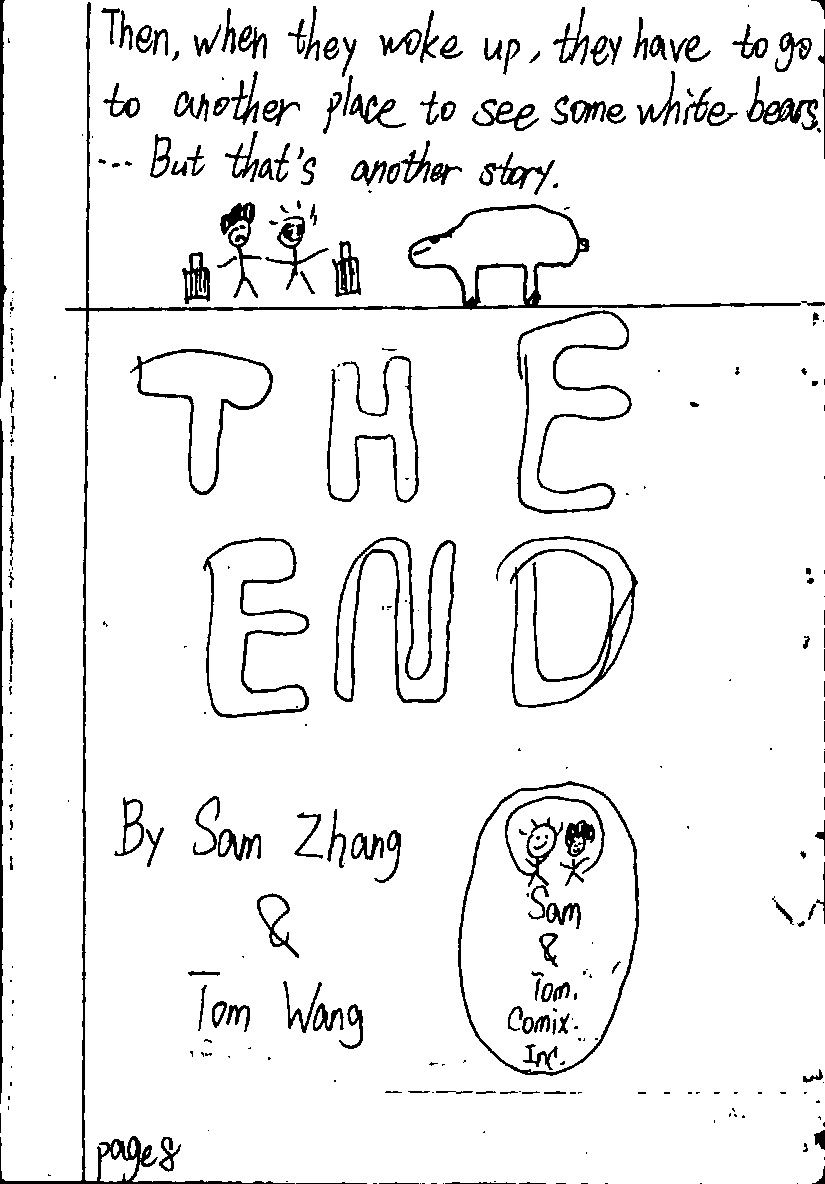 Then, when they woke up, they have to go
to another place to see some white bears.
... But that's another story.
THE
END
By Sam Zhang
&
Tom Wang
Sam
&
Tom.
Comix.
Inc.
page8